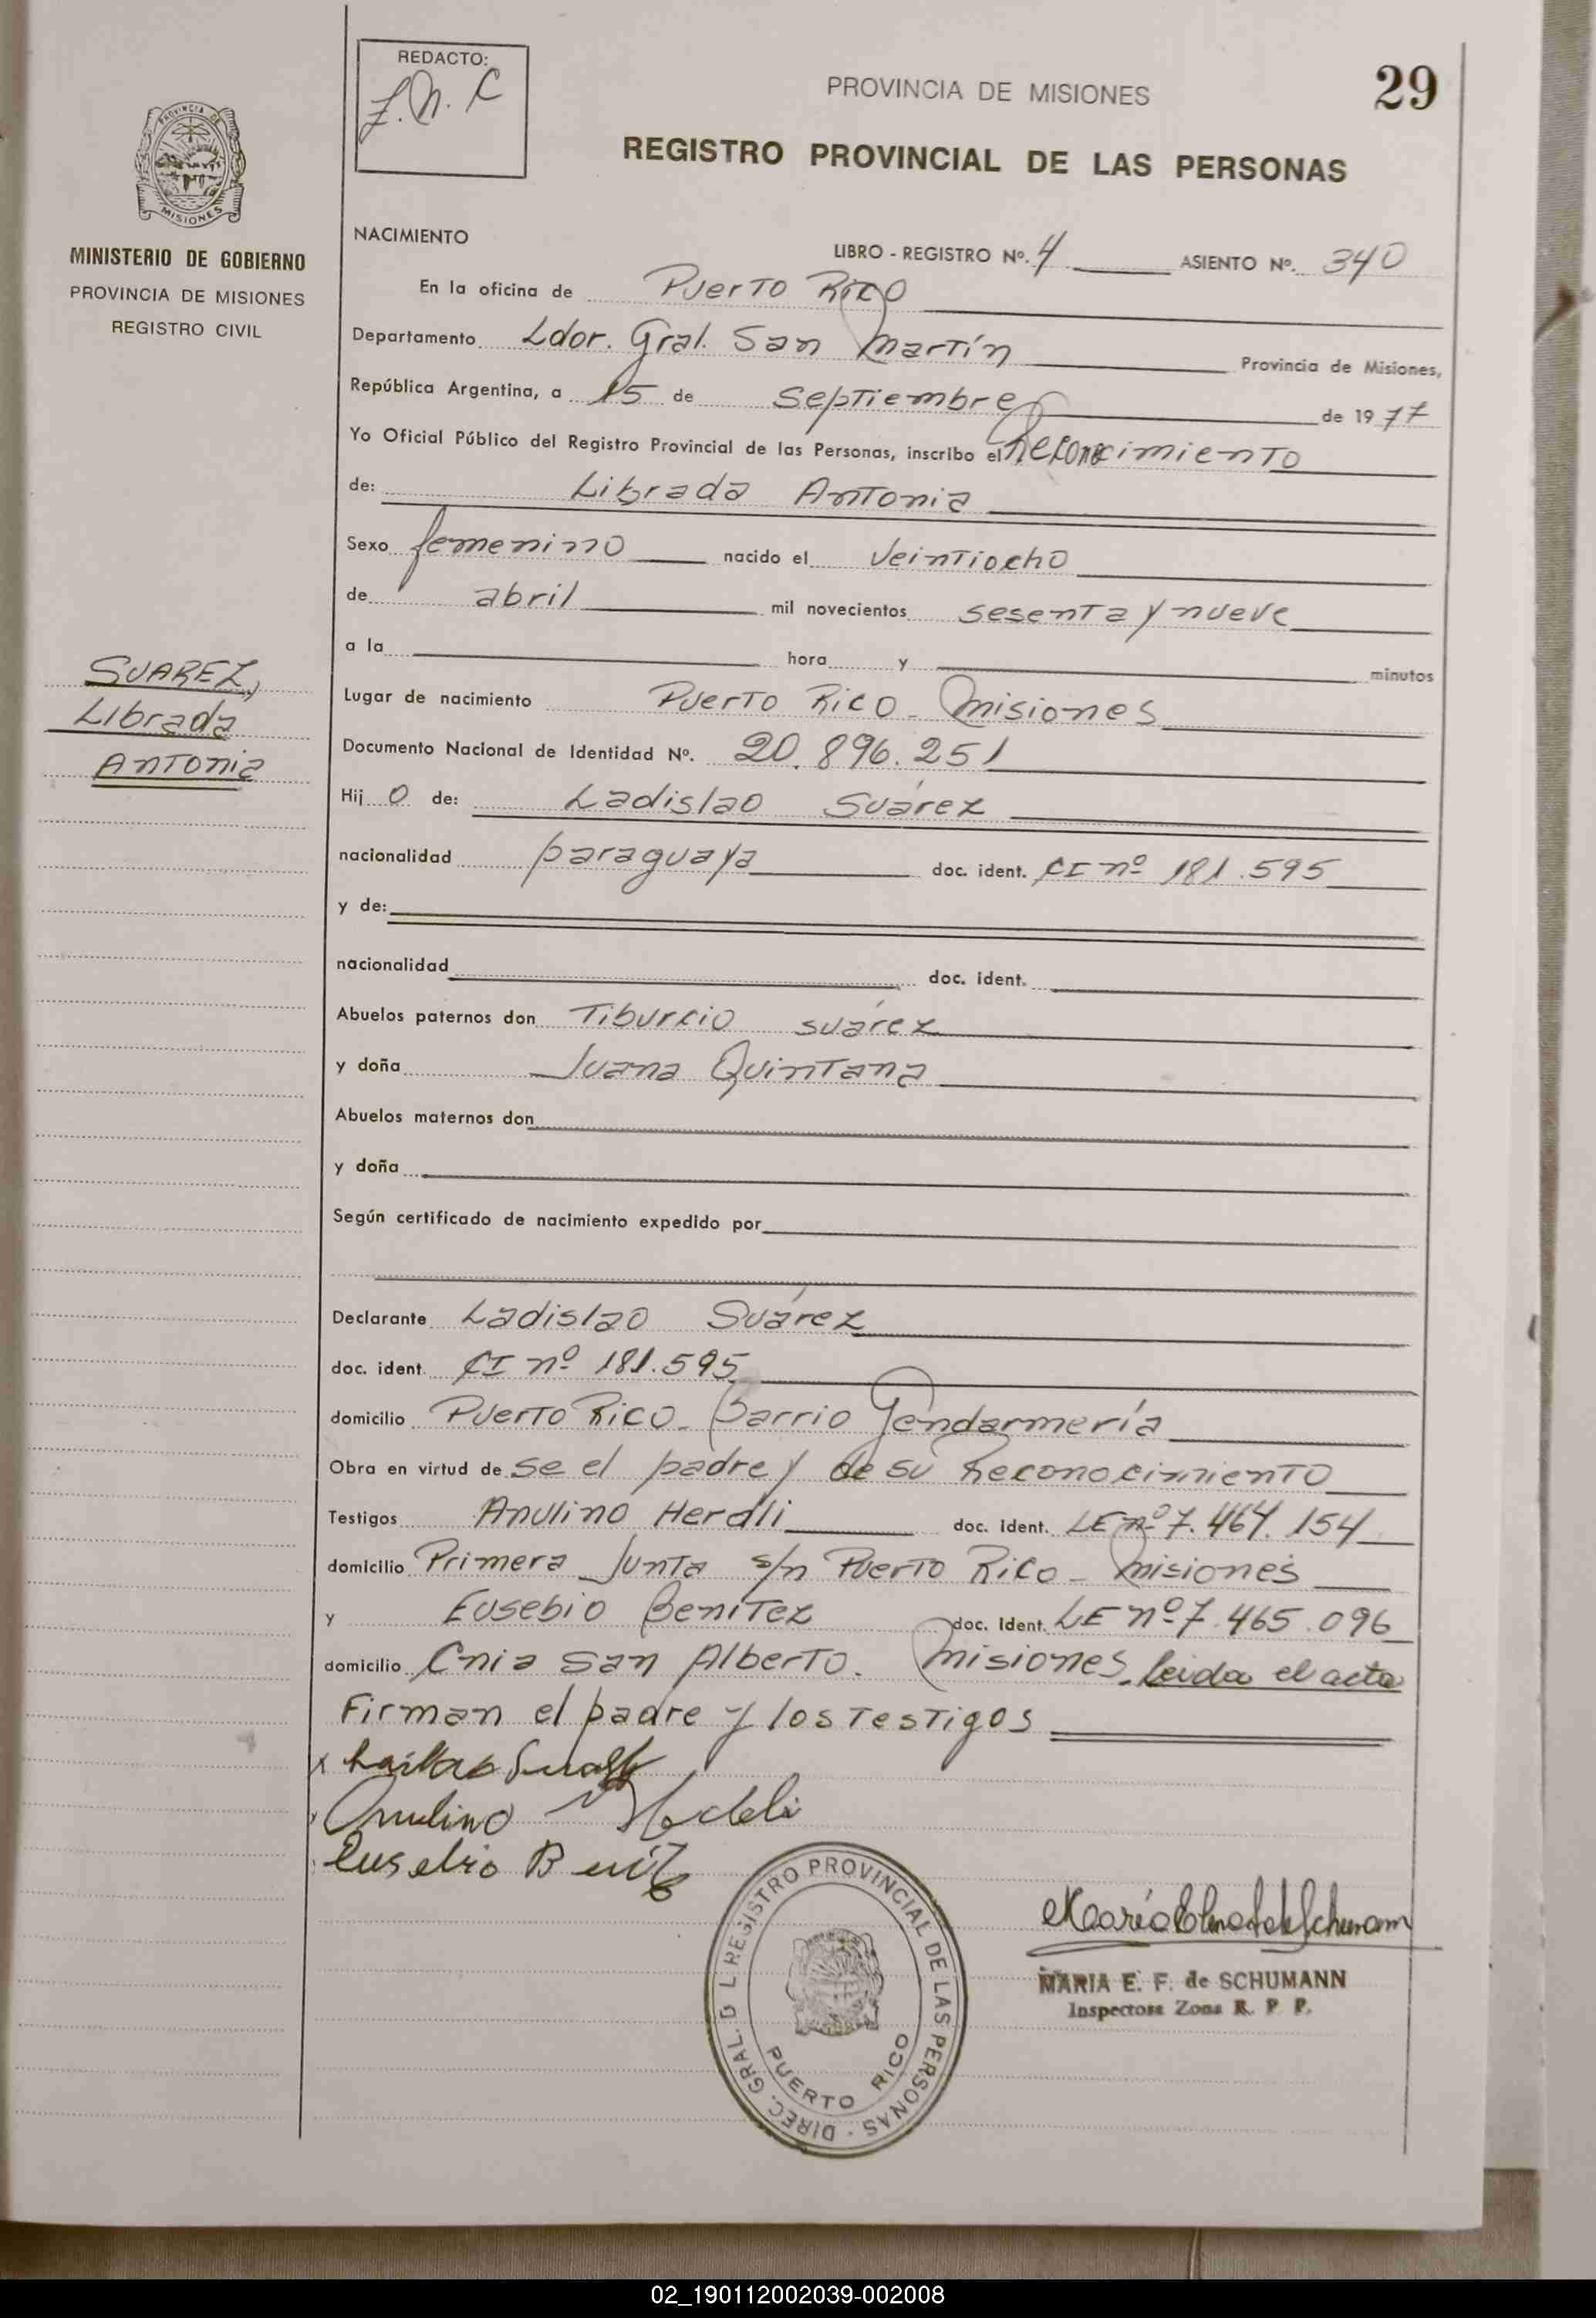 REDACTO:
PROVINCIA DE MISIONES
29
REGISTRO PROVINCIAL DE LAS PERSONAS
PROVINCIA DE
MISIONES
MINISTERIO DE GOBIERNO
PROVINCIA DE MISIONES
REGISTRO CIVIL
NACIMIENTO
LIBRO - REGISTRO Nº. 4 ASIENTO Nº. 340
En la oficina de Puerto Rico
Departamento Ldor. Gral. San Martín Provincia de Misiones,
República Argentina, a 15 de Septiembre de 1977
Yo Oficial Público del Registro Provincial de las Personas, inscribo el Reconocimiento
de: Librada Antonia
Sexo femenino nacido el veintiocho
de abril mil novecientos sesenta y nueve
a la hora y minutos
SUAREZ,
Librada
Antonia
Lugar de nacimiento Puerto Rico - Misiones
Documento Nacional de Identidad Nº. 20.896.251
Hij o de: Ladislao Suárez
nacionalidad paraguaya doc. ident. CI nº 181.595
y de:
nacionalidad doc. ident.
Abuelos paternos don Tiburcio Suárez
y doña Juana Quintana
Abuelos maternos don
y doña
Según certificado de nacimiento expedido por
Declarante Ladislao Suárez
doc. ident. CI nº 181.595
domicilio Puerto Rico - Barrio Gendarmería
Obra en virtud de se el padre y de su Reconocimiento
Testigos Anulino Herdli doc. ident. LE nº 7.464.154
domicilio Primera Junta s/n Puerto Rico - Misiones
y Eusebio Benitez doc. ident. LE nº 7.465.096
domicilio Cnia San Alberto. Misiones. leida el acta
Firman el padre y los testigos
Anulino
Eusebio
REGISTRO PROVINCIAL DE LAS PERSONAS - DIREC. GRAL. D L
PUERTO RICO
MARIA E. F. de SCHUMANN
Inspectora Zona R. P. P.
02_190112002039-002008